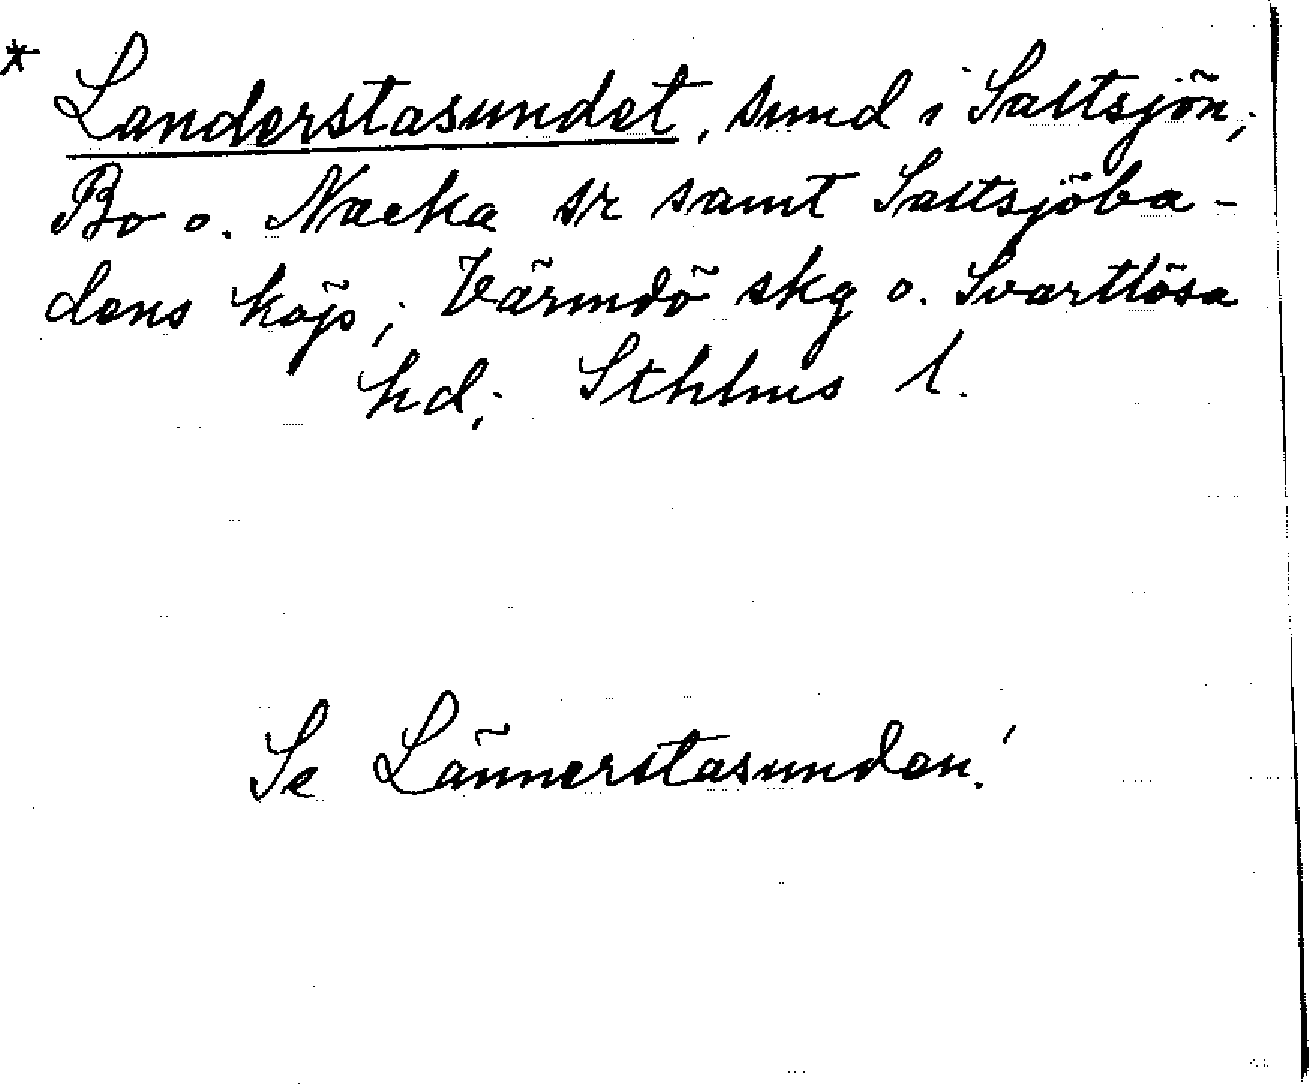 * Landerstasundet, sund i Saltsjön,
Bo o. Nacka sr samt Saltsjöba-
dens köp; Värmdö skg o. Svartlösa
hd; Sthlms l.
Se Lännerstasunden!